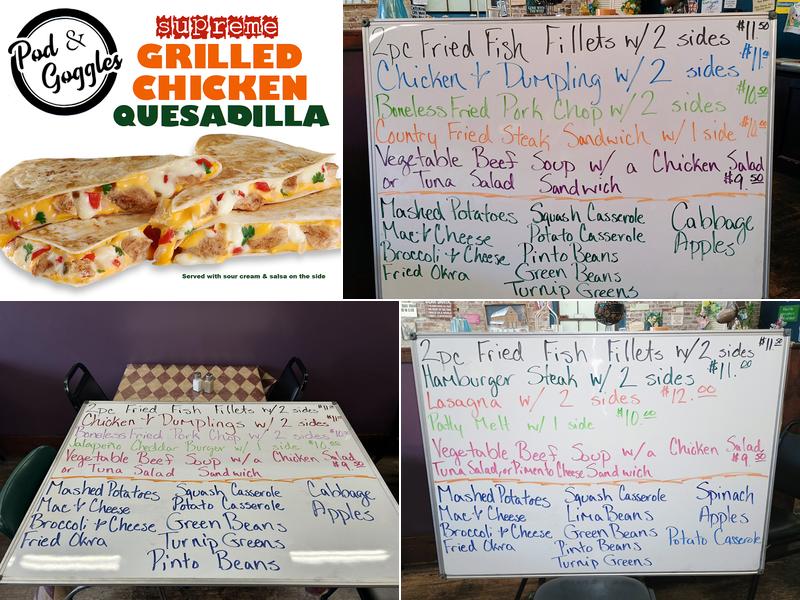 Pod &
Goggles
supreme
GRILLED
CHICKEN
QUESADILLA
Served with sour cream & salsa on the side
2pc Fried Fish Fillets w/ 2 sides $11.50
Chicken & Dumpling w/ 2 sides $11.00
Boneless Fried Pork Chop w/ 2 sides $10.50
Country Fried Steak Sandwich w/ 1 side
Vegetable Beef Soup w/ a Chicken Salad
or Tuna Salad Sandwich $9.50
Mashed Potatoes Squash Casserole Cabbage
Mac & Cheese Potato Casserole Apples
Broccoli & Cheese Pinto Beans
Fried Okra Green Beans
Turnip Greens
2pc Fried Fish Fillets w/ 2 sides
Chicken & Dumplings w/ 2 sides
Boneless Fried Pork Chop w/ 2 sides
Jalapeño Cheddar Burger w/ 1 side
Vegetable Beef Soup w/ a Chicken Salad
or Tuna Salad Sandwich $9.50
Mashed Potatoes Squash Casserole Cabbage
Mac & Cheese Potato Casserole Apples
Broccoli & Cheese Green Beans
Fried Okra Turnip Greens
Pinto Beans
2pc Fried Fish Fillets w/ 2 sides $11.50
Hamburger Steak w/ 2 sides $11.00
Lasagna w/ 2 sides $12.00
Patty Melt w/ 1 side $10.00
Vegetable Beef Soup w/ a Chicken Salad
Tuna Salad, or Pimento Cheese Sandwich $9.50
Mashed Potatoes Squash Casserole Spinach
Mac & Cheese Lima Beans Apples
Broccoli & Cheese Green Beans Potato Casserole
Fried Okra Pinto Beans
Turnip Greens